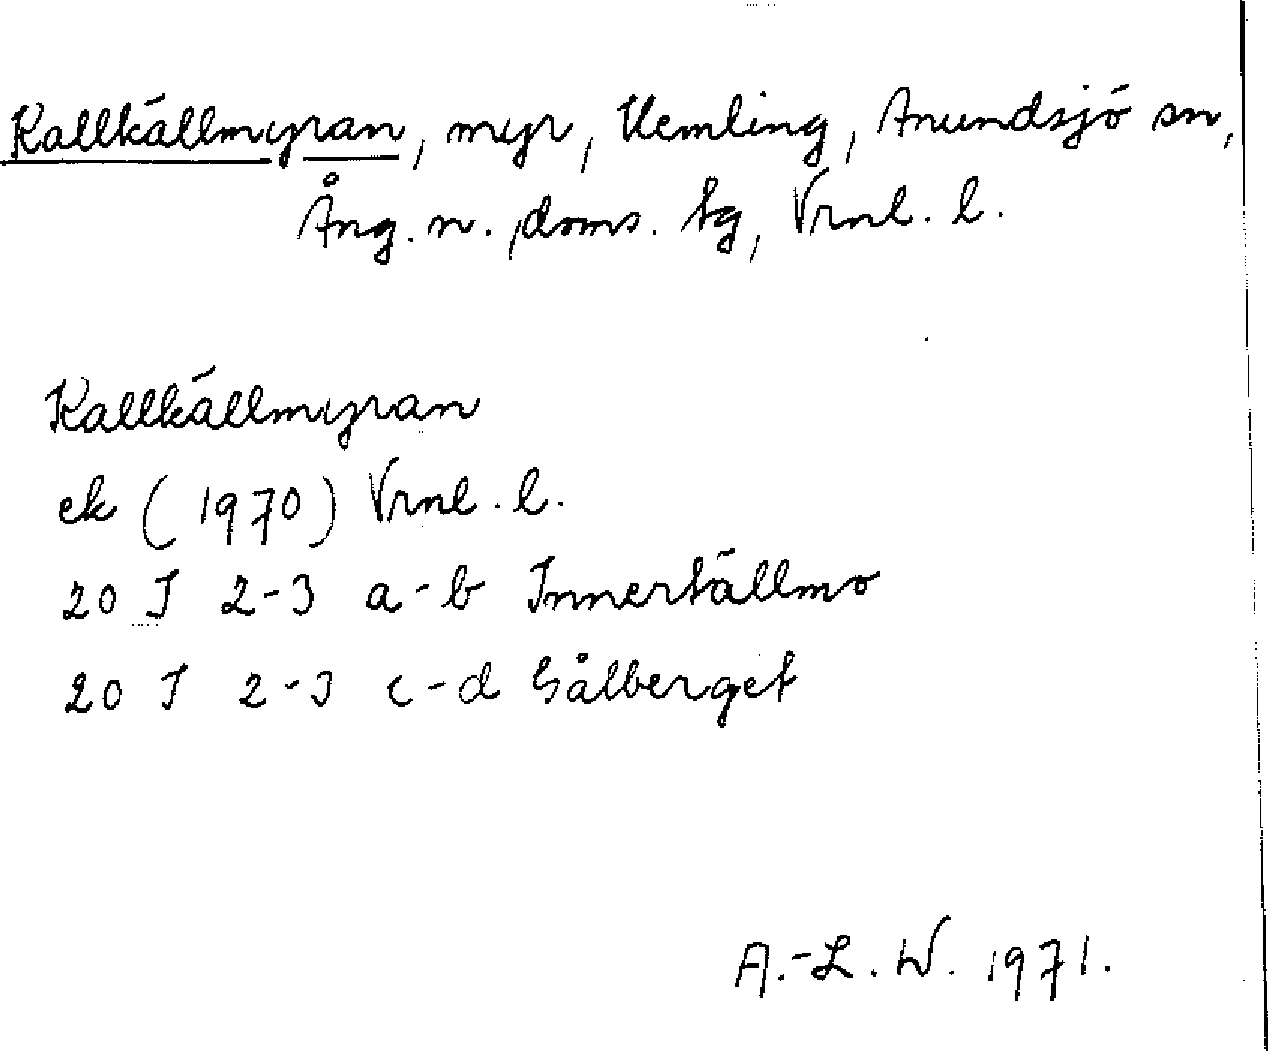 Kallkällmyran, myr, Kemling, Anundsjö sn,
Ång. n. doms. tg, Vrnl. l.
Kallkällmyran
ek (1970) Vrnl. l.
20 I 2-3 a-b Innertällmo
20 I 2-3 c-d Gålberget
A.-L. W. 1971.